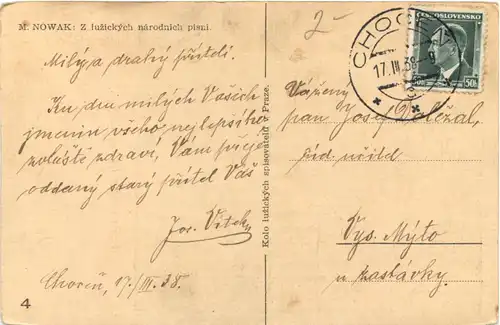 M. NOWAK: Z łužických národních písní.
Milý a drahý příteli.
Ku dni milých Vašich
jmenin všeho nejlepšího
zvláště zdraví, Vám přeje
oddaný starý přítel Váš
Jos. Vítek
Choceň, 17./III. 38.
4
Kolo lužických spisovatelů v Praze.
2-
CHOCEŇ
17.III.38
ČESKOSLOVENSKO
50h
Vážený
pan Josef Doležal,
říd. učitel
Vys. Mýto
u zastávky.